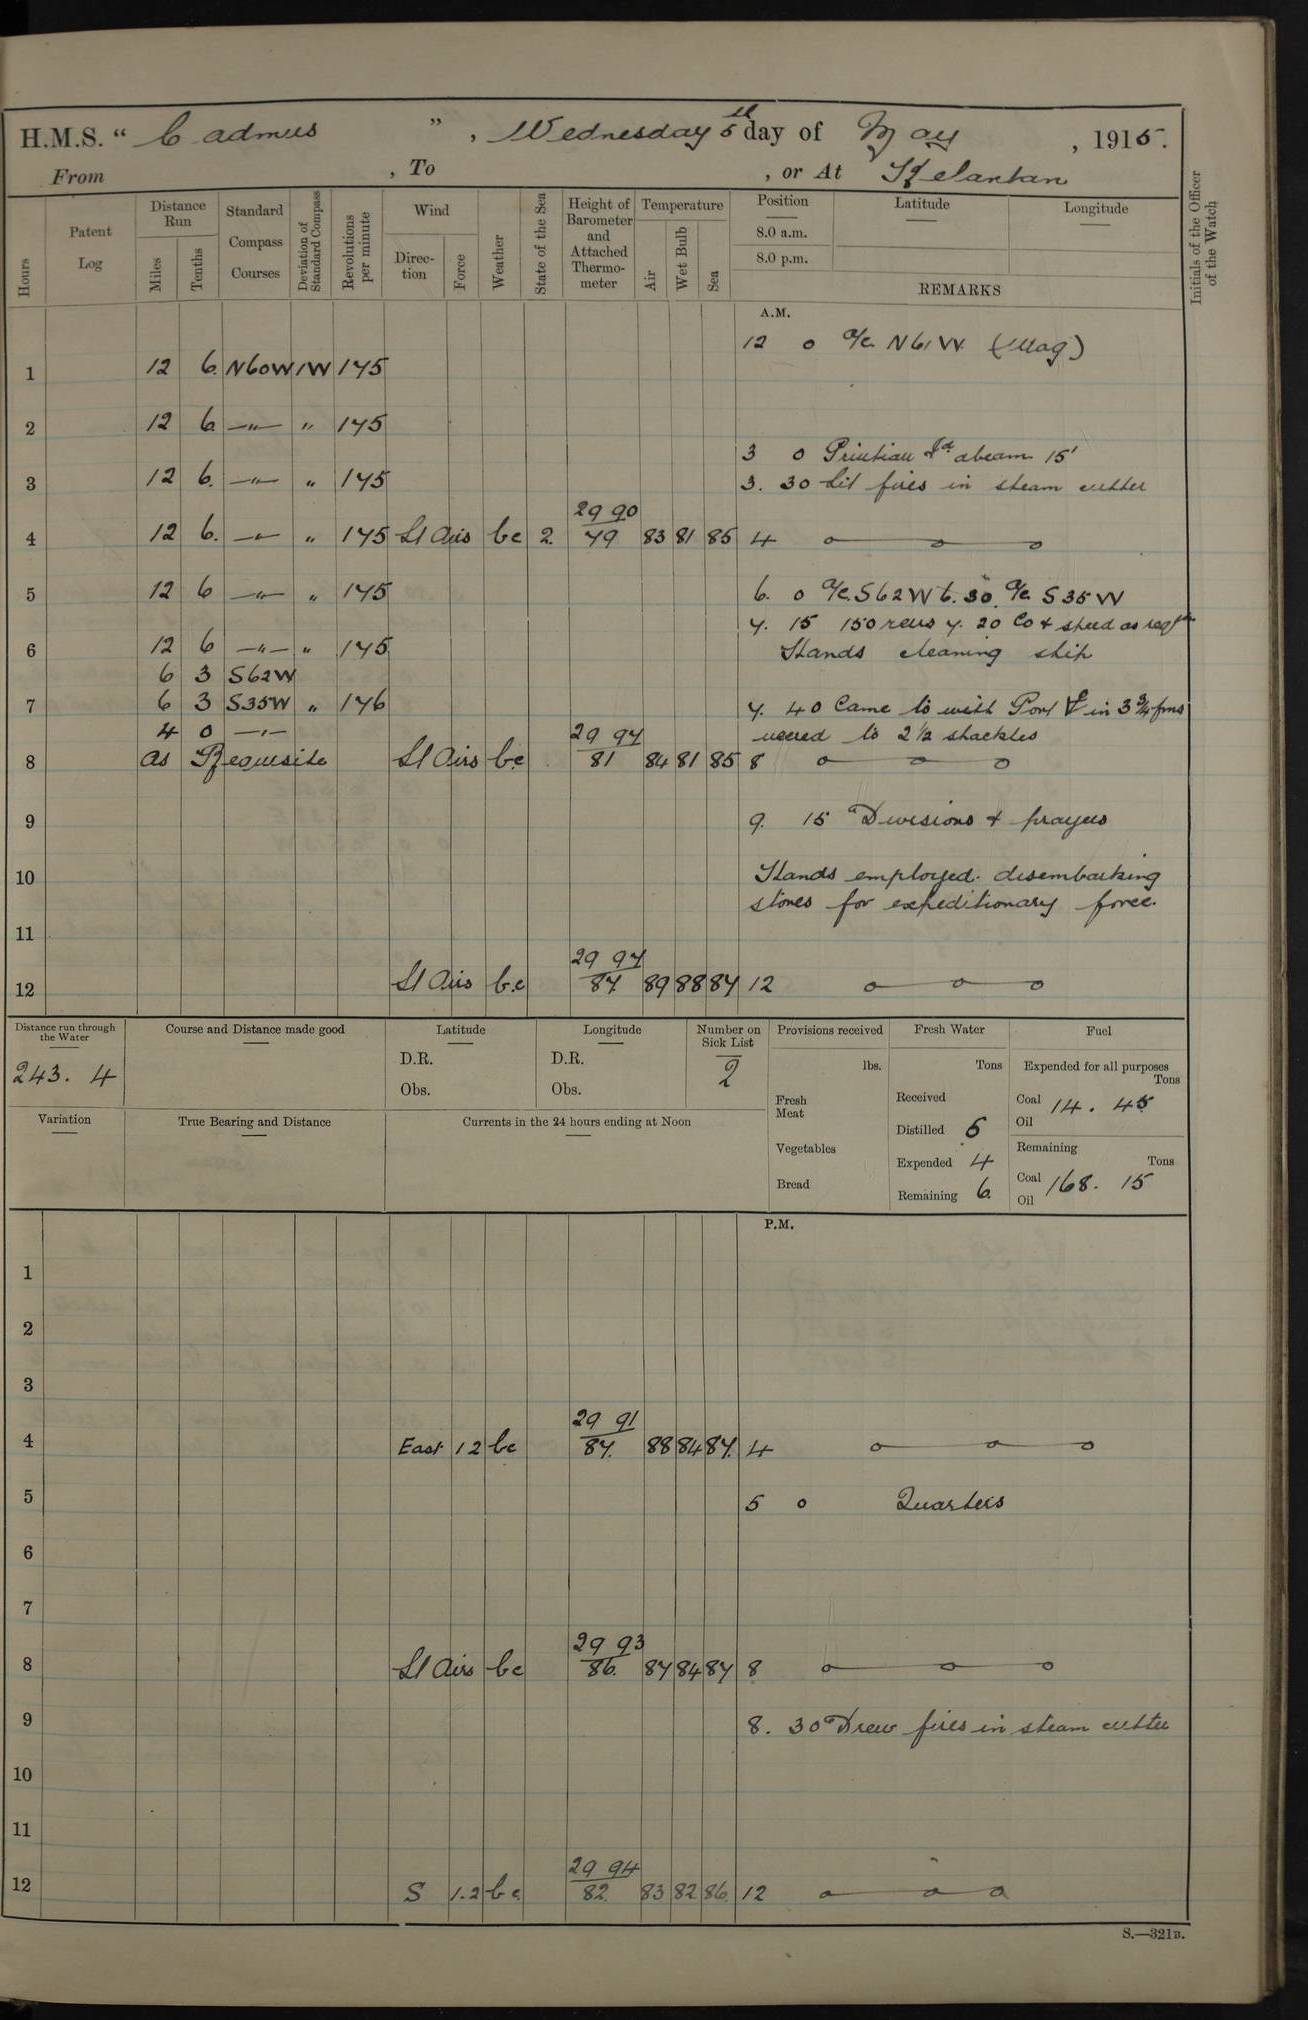 H.M.S. “ Cadmus ” , Wednesday 5th day of May , 1915.
From , To , or At Kelantan
Hours Patent Log Distance Run Miles Tenths Standard Compass Courses Deviation of Standard Compass Revolutions per minute Wind Direction Force Weather State of the Sea Height of Barometer and Attached Thermometer Temperature Air Wet Bulb Sea Position 8.0 a.m. 8.0 p.m. Latitude Longitude Initials of the Officer of the Watch
REMARKS
A.M.
12 0 a/c N61W (Mag)
1 12 6 N60W 1W 175
2 12 6 —"— " 175
3 0 Printian Id abeam 15'
3 12 6 —"— " 175 3. 30 Lit fires in steam cutter
29 90
4 12 6 —"— " 175 Lt Airs bc 2 79 83 81 85 4
5 12 6 —"— " 175 6. 0 a/c S62W 6. 30 a/c S35W
7. 15 150 revs 7. 20 Co & speed as reqte
6 12 6 —"— " 175 Hands cleaning ship
6 3 S62W
7 6 3 S35W " 176 7. 40 Came to with Port in 3 3/4 fms
4 0 —"— 29 97 veered to 2 1/2 shackles
8 As Requisite Lt Airs bc 81 84 81 85 8
9 9. 15 Divisions & prayers
10 Hands employed disembarking
stores for expeditionary force.
11
29 97
12 Lt Airs b.c 87 89 88 87 12
Distance run through the Water Course and Distance made good Latitude Longitude Number on Sick List Provisions received Fresh Water Fuel
243. 4 D.R. D.R. 2 lbs. Tons Expended for all purposes Tons
Obs. Obs. Fresh Meat Received Coal 14. 45
Oil
Variation True Bearing and Distance Currents in the 24 hours ending at Noon Distilled 5
Vegetables Expended 4 Remaining Tons
Bread Remaining 6 Coal 168. 15
Oil
P.M.
1
2
3
29 91
4 East 1 2 bc 87 88 84 87 4
5 5 0 Quarters
6
7
29 93
8 Lt Airs bc 86 87 84 87 8
9 8. 30 Drew fires in steam cutter
10
11
29 94
12 S 1.2 bc 82 83 82 86 12
S.—321B.